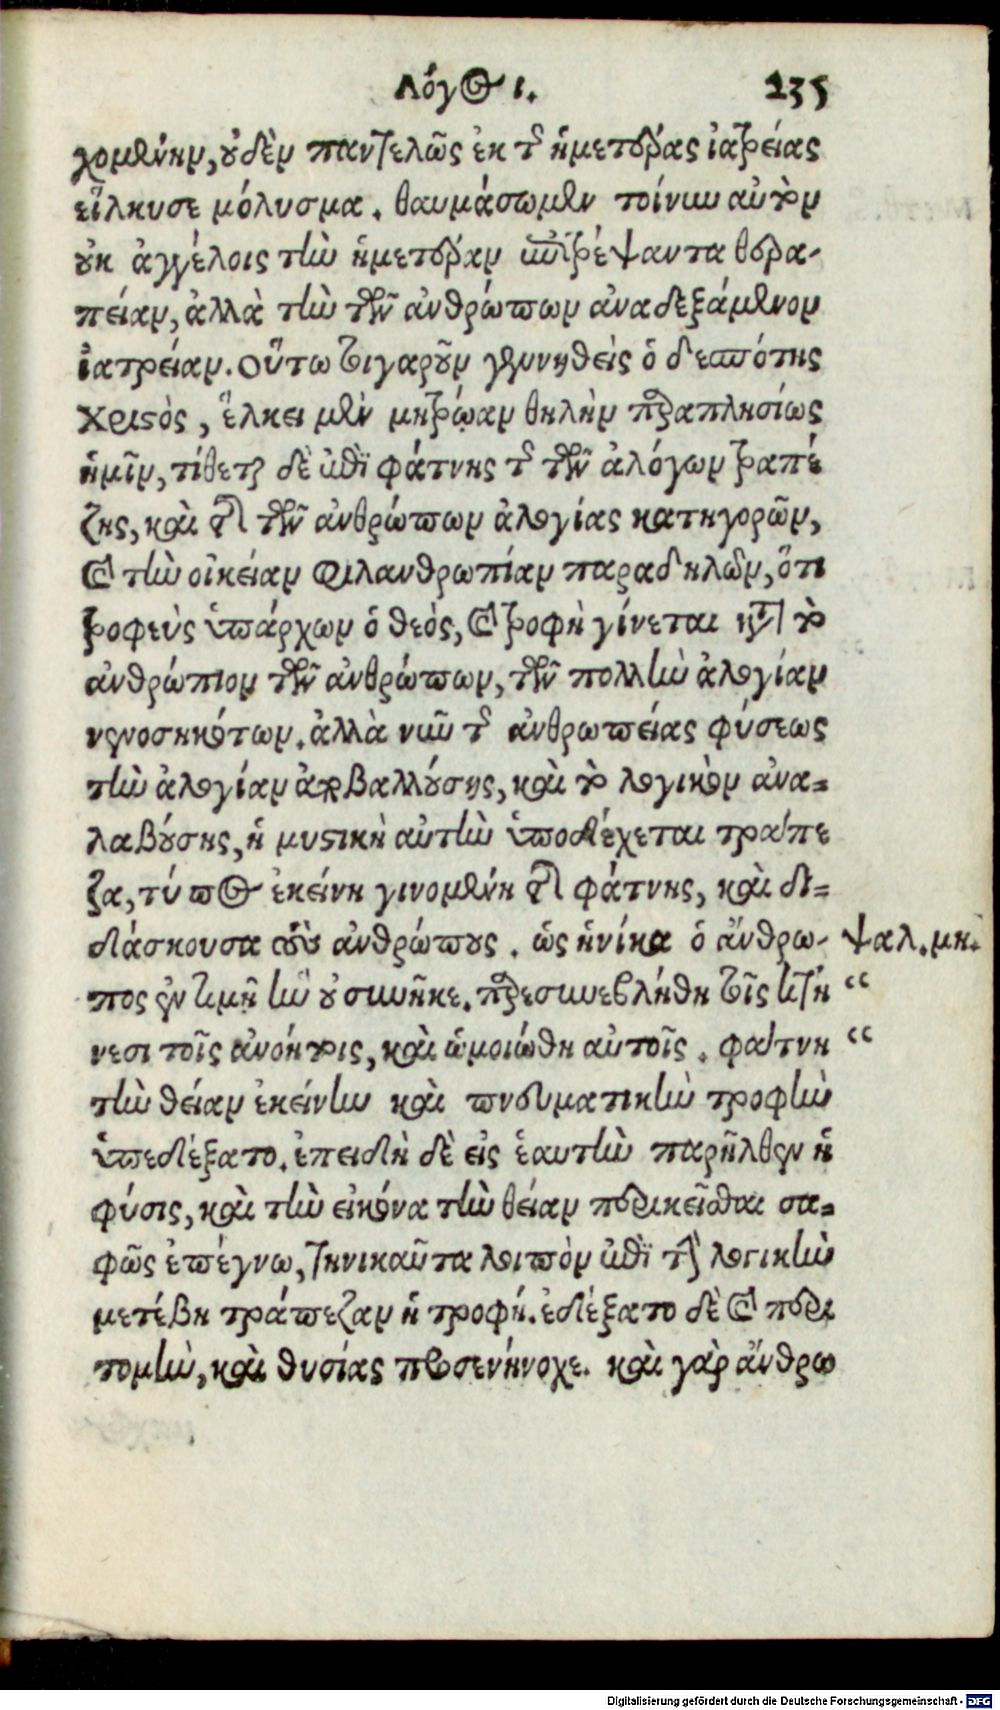 Λόγος ι. 235
χομένην, οὐδὲν παντελῶς ἐκ τῆς ἡμετέρας ἰατρείας
εἵλκυσε μόλυσμα. θαυμάσωμεν τοίνυν αὐτὸν
οὐκ ἀγγέλοις τὴν ἡμετέραν ἐπιτρέψαντα θερα-
πείαν, ἀλλὰ τὴν τῶν ἀνθρώπων ἀναδεξάμενον
ἰατρείαν. Οὕτω τοιγαροῦν γεννηθεὶς ὁ δεσπότης
Χριστὸς, ἕλκει μὲν μητρῴαν θηλὴν παραπλησίως
ἡμῖν, τίθεται δὲ ἐπὶ φάτνης τῆς τῶν ἀλόγων τραπέ
ζης, καὶ τὴν τῶν ἀνθρώπων ἀλογίας κατηγορῶν,
καὶ τὴν οἰκείαν φιλανθρωπίαν παραδηλῶν, ὅτι
τροφεὺς ὑπάρχων ὁ θεὸς, καὶ τροφὴ γίνεται κατὰ τὸ
ἀνθρώπιον τῶν ἀνθρώπων, τῶν πολλὴν ἀλογίαν
νενοσηκότων. ἀλλὰ νῦν τῆς ἀνθρωπείας φύσεως
τὴν ἀλογίαν ἀποβαλλούσης, καὶ τὸ λογικὸν ἀνα-
λαβούσης, ἡ μυστικὴ αὐτὴν ὑποδέχεται τράπε
ζα, τύπος ἐκείνη γινομένη τῆς φάτνης, καὶ δι-
δάσκουσα τοὺς ἀνθρώπους. ὡς ἡνίκα ὁ ἄνθρω- ψαλ. μη.
πος ἐν τιμῇ ὢν οὐ συνῆκε. παρεσυνεβλήθη τοῖς κτή “
νεσι τοῖς ἀνοήτοις, καὶ ὡμοιώθη αὐτοῖς. φάτνη “
τὴν θείαν ἐκείνην καὶ πνευματικὴν τροφὴν
ὑπεδέξατο. ἐπειδὴ δὲ εἰς ἑαυτὴν παρῆλθεν ἡ
φύσις, καὶ τὴν εἰκόνα τὴν θείαν περικεῖσθαι σα-
φῶς ἐπέγνω, τηνικαῦτα λοιπὸν ἐπὶ τὴν λογικὴν
μετέβη τράπεζαν ἡ τροφή. ἐδέξατο δὲ καὶ περι
τομὴν, καὶ θυσίας προσενήνοχε. καὶ γὰρ ἄνθρω
Digitalisierung gefördert durch die Deutsche Forschungsgemeinschaft - DFG